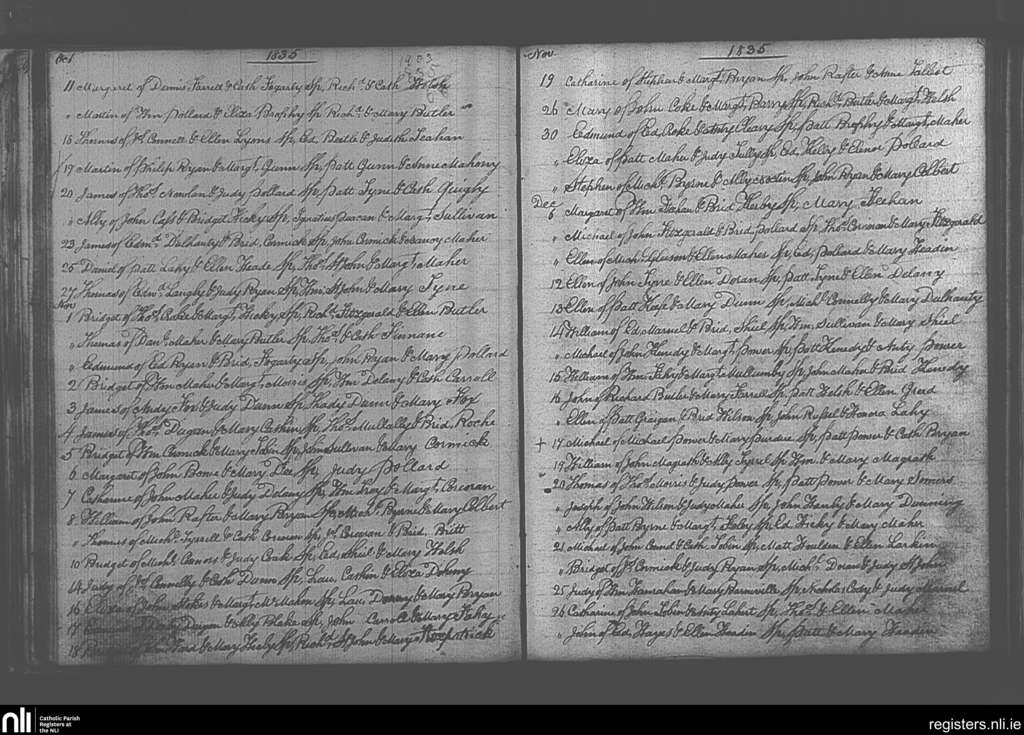 Oct 1835
11 Margaret of Dennis Farrell & Cath Fogarty Sp. Richd & Cath Walsh
" Martin of Wm Pollard & Eliza Brophy Sp Richd & Mary Butler
15 Thomas of Connett & Ellen Lyons Sp. Ed. Butler & Judith Leahan
19 Martin of Philip Ryan & Margt Quinn Sp. Patt Quinn & Anne Mahony
20 James of Thos Nowlan & Judy Pollard Sp. Patt Tyne & Cath Quigly
" Ally of John Cass & Bridget Hickey Sp. Ignatius Deacan & Margt Sullivan
23 James of Edmd Delhanty & Brid. Cormick Sp. John Cormick & Maher
25 Daniel of Patt Lahy & Ellen Heade Sp. Thos St John & Margt Maher
27 Thomas of Edmd Langly & Judy Ryan Sp. Wm St John & Mary Tyne
Nov
1 Bridget of Thos Coke & Margt Hickey Sp. Richd Fitzgerald & Ellen Butler
" Thomas of Danl Maher & Mary Butler Sp. Thos & Cath Finnane
" Edmund of Ed Ryan & Brid. Fogarty Sp. John Ryan & Mary Pollard
2 Bridget of Wm Maher & Margt Morris Sp. Wm Delany & Cath Carroll
3 James of Andy Fox & Judy Dunn Sp. Thady Dunn & Mary Fox
4 James of Thos Dugan & Mary Caskin Sp. Thos Mullally & Brid. Roche
5 Bridget of Wm Cormick & Mary Tobin Sp. John Sullivan & Mary Cormick
6 Margaret of John Bowe & Mary Dee Sp. Judy Pollard
7 Catharine of John Maher & Judy Delany Sp. Wm Troy & Margt Corcoran
8 William of John Rafter & Mary Bryan Sp. Michl Byrne & Mary Colbert
" Thomas of Michl Tyrrell & Cath Corcoran Sp. Corcoran & Brid. Britt
10 Bridget of Michl Connors & Judy Cook Sp. Ed. Shiel & Mary Walsh
14 Judy of Connelly & Cath Dunn Sp. Lau. Caskin & Eliza Doheny
16 Eliza of John Stokes & Margt McMahon Sp. Lau. & Mary Bryan
17 Dugan & Ally Blake Sp. John Carroll & Mary Fahy
18 Ford & Mary Sp. Richd St John & Mary
Nov. 1835
19 Catharine of Stephen & Margt Bryan Sp. John Rafter & Anne Talbot
26 Mary of John Coke & Margt Barry Sp. Richd Butler & Margt Walsh
30 Edmund of Ed. Roke & Anty Cleary Sp. Patt Brophy & Margt Maher
" Eliza of Patt Maher & Judy Tully Sp. Ed. Kelly & Elenor Pollard
" Stephen of Michl Byrne & Ally Sp. John Ryan & Mary Colbert
Dec
6 Margaret of Wm & Brid Sp. Mary Feehan
" Michael of John Fitzgerald & Brid Pollard Sp. Thos & Mary Fitzgerald
" Ellen of Michl Gleeson & Ellen Maher Sp. Ed. Pollard & Mary Headin
12 Ellen of John Tyne & Ellen Doran Sp. Patt Tyne & Ellen Delany
13 Ellen of Patt Keefe & Mary Dunn Sp. Michl Connelly & Mary Delhanty
14 William of Ed Marnel & Brid. Shiel Sp. Wm Sullivan & Mary Shiel
" Michael of John Kenedy & Margt Power Sp. Patt Kenedy & Anty Power
15 William of Wm & Margt Mullumby Sp. John Maher & Brid Kenedy
16 John of Richard Butler & Mary Farrell Sp. Patt Walsh & Ellen Greed
" Ellen of Patt Graigan & Brid Wilson Sp. John Russel & Honora Lahy
+ 17 Michael of Michael Power & Mary Purdue Sp. Patt Power & Cath Bryan
19 William of John Magrath & Ally Tyrrel Sp. Wm & Mary Magrath
20 Thomas of Thos Morris & Judy Power Sp. Patt Power & Mary Somers
" Joseph of John Wilson & Judy Maher Sp. John Hanly & Mary Dunning
" Ally of Patt Byrne & Margt Foley Sp. Ed. Hicky & Mary Maher
21 Michael of John & Cath Tobin Sp. Matt Houlden & Ellen Larkin
" Bridget of Cormick & Judy Ryan Sp. Michl Doran & Judy St John
25 Judy of Wm Hanrahan & Mary Sp. Nicholas Cody & Judy Marnel
26 Catharine of John Tobin & Anty Sp. Thos & Ellen Maher
" John of Ed. Hayes & Ellen Headin Sp. Patt & Mary Headin
nli Catholic Parish
Registers at
the NLI
registers.nli.ie